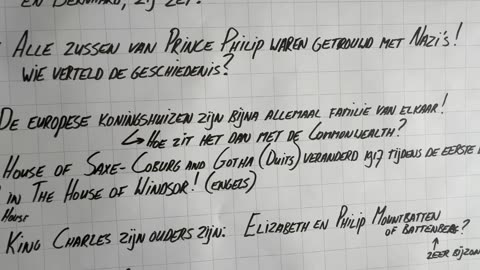 EN BERNHARD, ZIJ ZEI:
ALLE ZUSSEN VAN PRINCE PHILIP WAREN GETROUWD MET NAZI'S!
WIE VERTELD DE GESCHIEDENIS?
DE EUROPESE KONINGSHUIZEN ZIJN BIJNA ALLEMAAL FAMILIE VAN ELKAAR!
↳ HOE ZIT HET DAN MET DE COMMONWEALTH?
HOUSE OF SAXE-COBURG AND GOTHA (DUITS) VERANDERD 1917 TIJDENS DE EERSTE
IN THE HOUSE OF WINDSOR! (ENGELS)
HOUSE
KING CHARLES ZIJN OUDERS ZIJN: ELIZABETH EN PHILIP MOUNTBATTEN
OF BATTENBERG?
↑
ZEER BIJZON